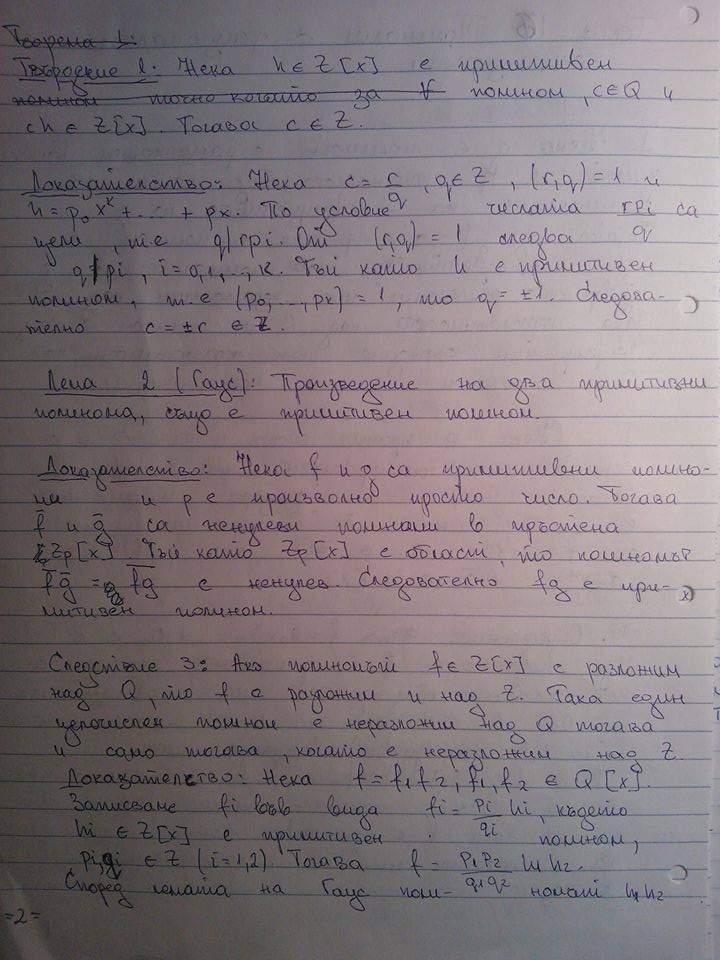 Теорема 1:
Твърдение 1. Нека h ∈ Z[x] е примитивен
полином точно когато за ∀ полином, c∈Q и
ch ∈ Z[x]. Тогава c ∈ Z.
Доказателство: Нека c = r/q, q∈Z, (r,q) = 1 и
h = p₀x^k + ... + pₖ. По условие числата rpᵢ/q са
цели, т.е q/rpᵢ. От (r,q) = 1 следва
q/pᵢ, i = 0,1,..,k. Тъй като h е примитивен
полином, т.е (p₀,..,pₖ) = 1, то q = ±1. Следова-
телно c = ±r ∈ Z.
Лема 2 (Гаус): Произведение на два примитивни
полинома, също е примитивен полином.
Доказателство: Нека f и g са примитивни полино-
ми и p е произволно просто число. Тогава
f̄ и ḡ са ненулеви полиноми в пръстена
Zp[x]. Тъй като Zp[x] е област, то полиномът
f̄ḡ = f̅g̅ е ненулев. Следователно fg е при-
митивен полином.
Следствие 3: Ако полиномът f∈Z[x] е разложим
над Q, то f е разложим и над Z. Така един
целочислен полином е неразложим над Q тогава
и само тогава, когато е неразложим над Z.
Доказателство: Нека f = f₁f₂, f₁,f₂ ∈ Q[x].
Записваме fᵢ във вида fᵢ = pᵢ/qᵢ hᵢ, където
hᵢ ∈ Z[x] е примитивен полином,
pᵢ,qᵢ ∈ Z (i=1,2). Тогава f = p₁p₂/q₁q₂ h₁h₂.
Според лемата на Гаус поли- номът h₁h₂
=2=